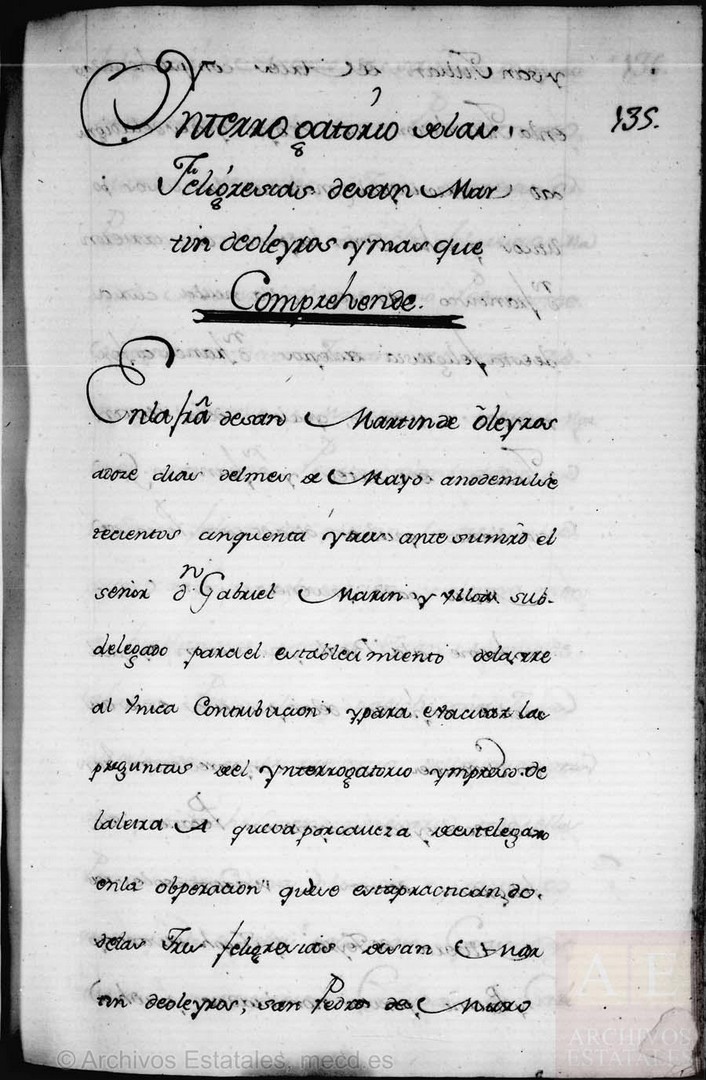 135.
Ynterrogatorio de las
Feligresias de san Mar
tin de oleyros y mas que
Comprehende.
En la fra de san Martin de oleyros
a doze dias del mes de Mayo año de mil se
tecientos cinquenta y tres ante su mrd el
señor dn Gabriel Marin y sub-
delegado para el establecimiento de la rre
al Ynica Contribucion, y para evacuar las
preguntas del ynterrogatorio ympreso de
la letra A que va por caveza de este legaxo
en la obperacion que se esta practicando.
de las Tres feligresias de san Mar
tin de oleyros, san Pedro de
© Archivos Estatales, mecd.es
AE
ARCHIVOS
ESTATALES